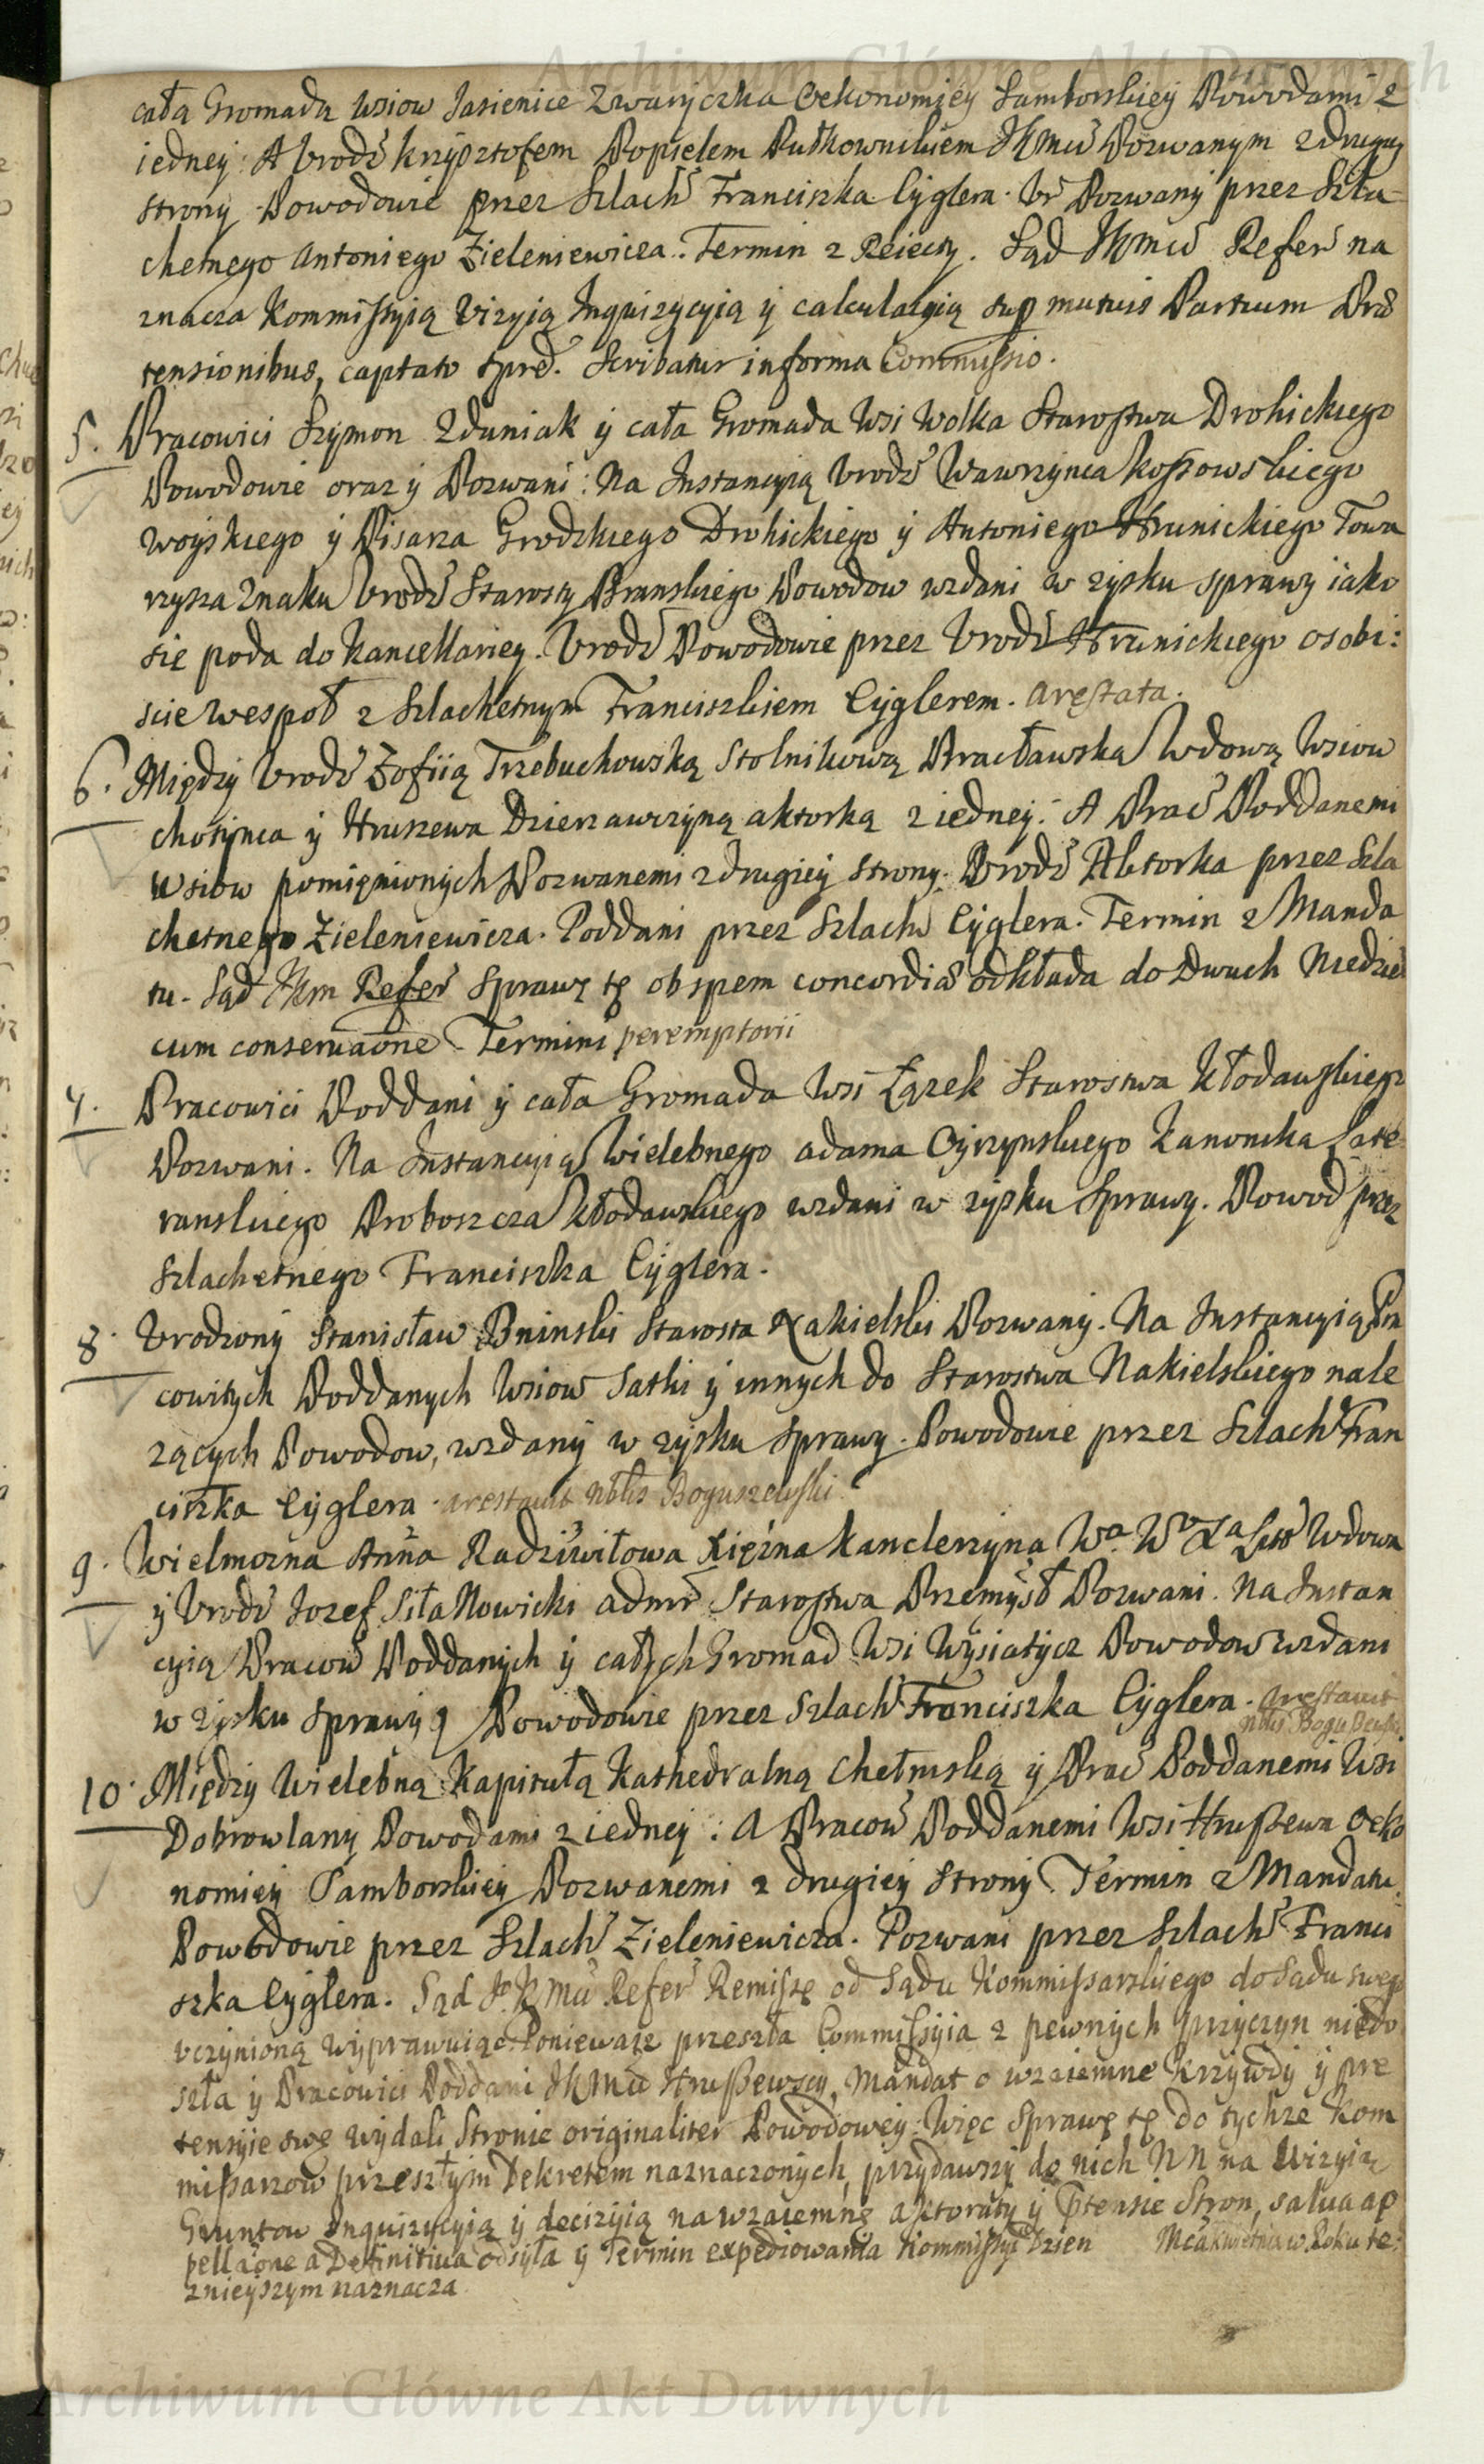 Archiwum Główne Akt Dawnych
cała Gromada wsiow Jasienice Zwaryczka Oekonomiey Samborskiey Powodami z
iedney: A Urodź Krzysztofem Popielem Pułkownikiem JKmći Pozwanym z drugiey
strony Powodowie przez Szlach Franciszka Cyglera. Ur Pozwany przez Szla-
chetnego Antoniego Zieleniewicza. Termin z Reiecty. Sąd JKmći Refer na
znacza Kommissyią Vizyią Inquizycyią y calculacyią sup mutuis Partium Prae
tensionibus, captato tpre. Scribatur in forma Commissio.
5. Pracowici Szymon Zduniak y cała Gromada Wsi Wolka Starostwa Drohickiego
Powodowie oraz y Pozwani: Na Instancyią Urodź Wawrzynca Kossowskiego
Woyskiego y Pisarza Grodzkiego Drohickiego y Antoniego Hrunickiego Towa
rzysza Znaku Urodź Starosty Branskiego Powodow wzdani w zysku sprawy iako
się poda do Kancellariey. Urodź Powodowie przez Urodź Hrunickiego osobi:
scie wespoł z Szlachetnym Franciszkiem Cyglerem. arestata.
6. Między Urodź Zofiią Trzebuchowską Stolnikową Bracławską Wdową Wsiow
Chotynca y Hruszewa Dzierzawczyną aktorką z iedney: A Prac Poddanemi
Wsiow pomięnionych Pozwanemi z drugiey strony. Urodź Aktorka przez Szla
chetnego Zieleniewicza. Poddani przez Szlach Cyglera. Termin z Manda
tu. Sąd JKm Refer Sprawę tę ob spem concordiae odkłada do dwuch Niedziel
cum conservaone Termini peremptorii
7. Pracowici Poddani y cała Gromada Wsi Łązek Starostwa Kłodawskiego
Pozwani. Na Instancyią Wielebnego Adama Oyrzynskiego Kanonika Late
ranskiego Proboszcza Kłodawskiego wzdani w zysku Sprawy. Powod przez
Szlachetnego Franciszka Cyglera.
8. Urodzony Stanisław Bninski Starosta Nakielski Pozwany. Na Instancyią Pra
cowitych Poddanych Wsiow Sadki y innych do Starostwa Nakielskiego nale
zących Powodow, wzdany w zysku Sprawy. Powodowie przez Szlach Fran
ciszka Cyglera. arestavit Nobilis Boguszewski
9. Wielmozna Anna Radziwiłowa Xięzna Kanclerzyna Wa. W. Xa Litt Wdowa
y Urodź Jozef Siła Nowicki admr Starostwa Przemysł Pozwani. Na Instan
cyią Pracow Poddanych y całych Gromad Wsi Wysiatycz Powodow wzdani
w zysku Sprawy Powodowie przez Szlach Franciszka Cyglera. arestavit
Nblis Boguszewski
10. Między Wielebną Kapitułą Kathedralną Chełmską y Prac Poddanemi Wsi
Dobrowlany Powodami z iedney: A Pracow Poddanemi Wsi Hruszewa Oeko
nomiey Samborskiey Pozwanemi z drugiey strony Termin z Mandatu.
Powodowie przez Szlach Zieleniewicza. Pozwani przez Szlach Franci
szka Cyglera. Sąd JKMći Refer Remissę od Sądu Kommissarskiego do Sądu swego
uczynioną wyprawuiąc. Poniewaz przeszła Commissyia z pewnych przyczyn niedo
szła y Pracowici Poddani JKMći Hruszewscy, Mandat o wzaiemne Krzywdy y pre
tensyie swe wydali Stronie originaliter Powodowey: Więc Sprawę tę do tychze Kom
missarzow przeszłym Dekretem naznaczonych, przydawszy do nich NN na Wizyią
Gruntow Inquizycyią y decizyią na wzaiemne aktoraty y ptensie Stron, salva ap
pellaone a Definitiva odsyła y Termin expediowania Kommissyi Dzien Mca Kwietnia w Roku te:
znieyszym naznacza.
Archiwum Główne Akt Dawnych